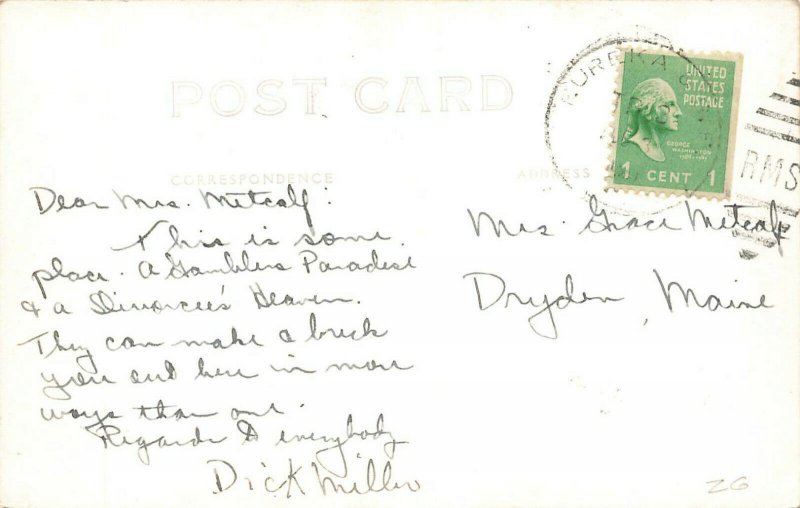 POST CARD
EUREKA
UNITED
STATES
POSTAGE
GEORGE
WASHINGTON
1 CENT 1
RMS
CORRESPONDENCE
ADDRESS
Dear Mrs. Metcalf:
This is some
place. A Gamblers Paradise
& a Divorcee's Heaven.
They can make a
you out here in more
ways than one.
Regards to everybody
Dick Miller
Mrs. Grace Metcalf
Dryden, Maine
26